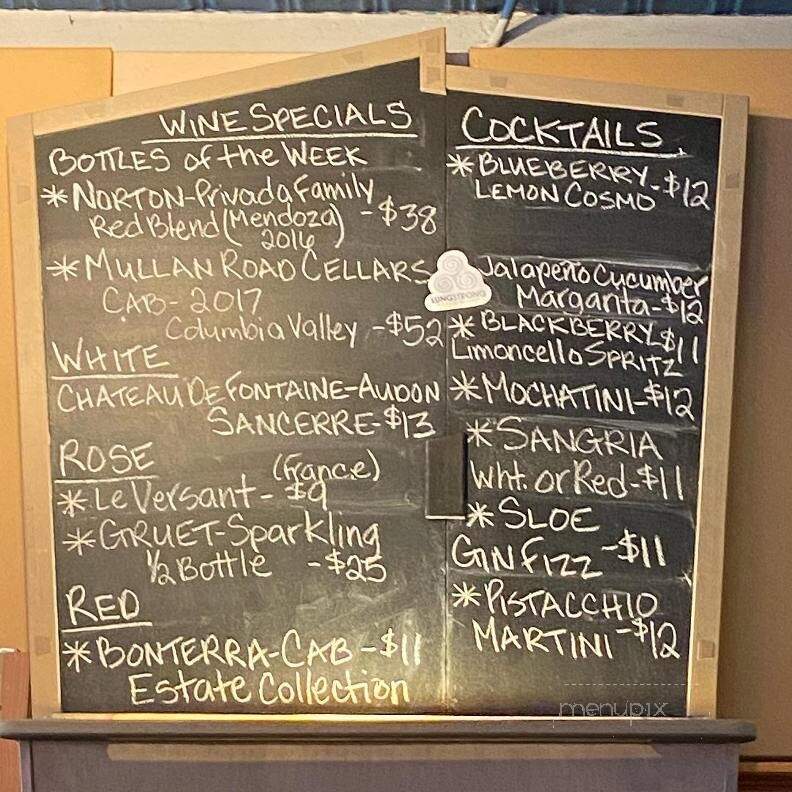 WINE SPECIALS
BOTTLES of the WEEK
* NORTON-Privada Family
Red Blend (Mendoza) - $38
2016
* MULLAN ROAD CELLARS
CAB- 2017
Columbia Valley - $52
WHITE
CHATEAU DE FONTAINE-AUDON
SANCERRE-$13
ROSE
(france)
* Le Versant - $9
* GRUET-Sparkling
1/2 Bottle - $25
RED
* BONTERRA-CAB-$11
Estate Collection
COCKTAILS
* BLUEBERRY - $12
LEMON COSMO
LUNGSTRONG
Jalapeño Cucumber
Margarita-$12
* BLACKBERRY $11
Limoncello SPRITZ
* MOCHATINI-$12
* SANGRIA
Wht. or Red-$11
* SLOE
GIN FIZZ -$11
* PISTACCHIO
MARTINI -$12
menupix